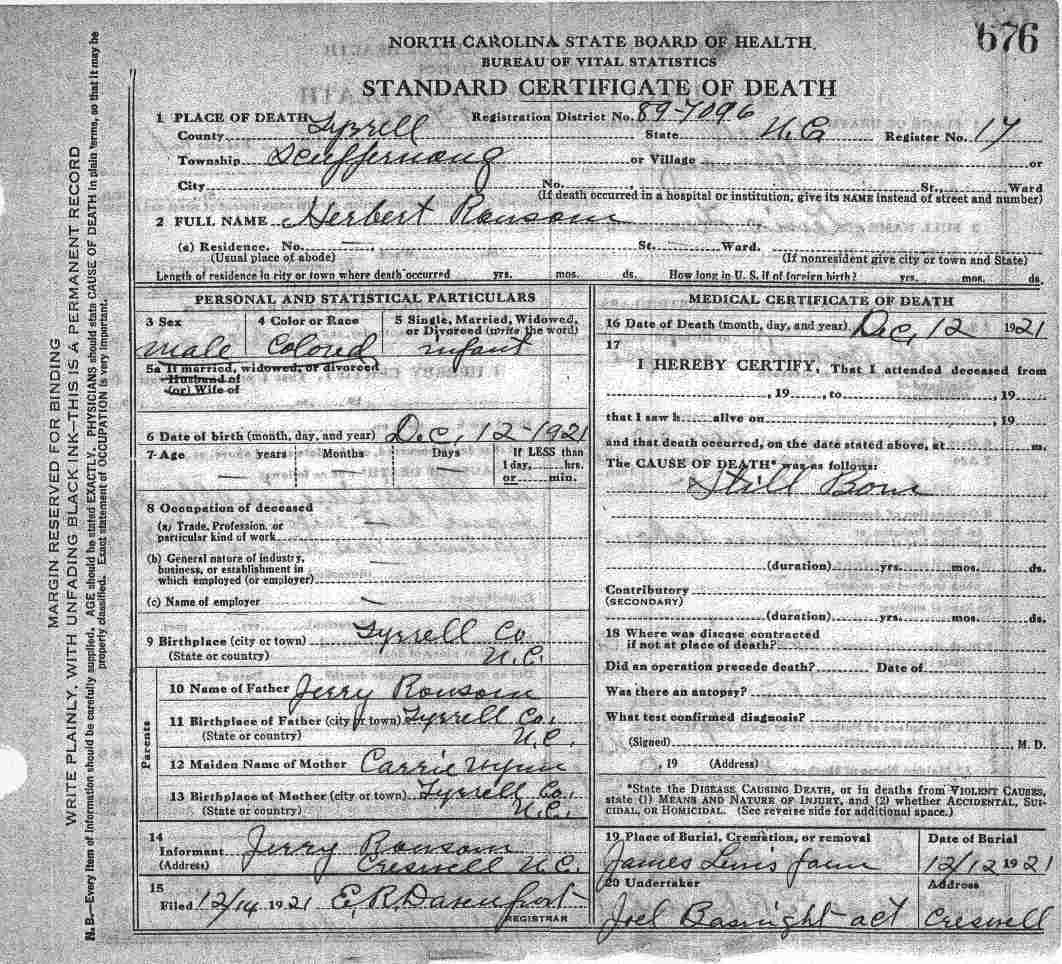 676
NORTH CAROLINA STATE BOARD OF HEALTH
BUREAU OF VITAL STATISTICS
STANDARD CERTIFICATE OF DEATH
1 PLACE OF DEATH Registration District No. 89-7096
County Tyrrell State N.C. Register No. 17
Township Scuppernong or Village or
City No. , St., Ward
(If death occurred in a hospital or institution, give its NAME instead of street and number)
2 FULL NAME Herbert Ransom
(a) Residence. No. — , St. Ward.
(Usual place of abode) (If nonresident give city or town and State)
Length of residence in city or town where death occurred yrs. mos. ds. How long in U. S. if of foreign birth? yrs. mos. ds.
PERSONAL AND STATISTICAL PARTICULARS
3 Sex 4 Color or Race 5 Single, Married, Widowed, or Divorced (write the word)
male Colored infant
5a If married, widowed, or divorced
Husband of
(or) Wife of
6 Date of birth (month, day, and year) Dec, 12-1921
7 Age years Months Days If LESS than
1 day, hrs.
or min.
— — —
8 Occupation of deceased
(a) Trade, Profession, or
particular kind of work —
(b) General nature of industry,
business, or establishment in
which employed (or employer) —
(c) Name of employer —
9 Birthplace (city or town) Tyrrell Co
(State or country) N.C.
Parents
10 Name of Father Jerry Ransom
11 Birthplace of Father (city or town) Tyrrell Co.
(State or country) N.C.
12 Maiden Name of Mother Carrie Wynn
13 Birthplace of Mother (city or town) Tyrrell Co.
(State or country) N.C.
14
Informant Jerry Ransom
(Address) Creswell N.C.
15
Filed 12/14 1921 E.R. Davenport
REGISTRAR
MEDICAL CERTIFICATE OF DEATH
16 Date of Death (month, day, and year) Dec, 12 1921
17
I HEREBY CERTIFY, That I attended deceased from
, 19 , to , 19
that I saw h alive on , 19
and that death occurred, on the date stated above, at m.
The CAUSE OF DEATH* was as follows:
Still Born
(duration) yrs. mos. ds.
Contributory
(SECONDARY)
(duration) yrs. mos. ds.
18 Where was disease contracted
if not at place of death?
Did an operation precede death? Date of
Was there an autopsy?
What test confirmed diagnosis?
(Signed) M. D.
, 19 (Address)
*State the DISEASE CAUSING DEATH, or in deaths from VIOLENT CAUSES,
state (1) MEANS AND NATURE OF INJURY, and (2) whether ACCIDENTAL, SUI-
CIDAL, OR HOMICIDAL. (See reverse side for additional space.)
19 Place of Burial, Cremation, or removal Date of Burial
James Lewis farm 12/12 1921
20 Undertaker Address
Joel Basnight act Creswell
MARGIN RESERVED FOR BINDING
WRITE PLAINLY, WITH UNFADING BLACK INK—THIS IS A PERMANENT RECORD
N. B.—Every item of information should be carefully supplied. AGE should be stated EXACTLY. PHYSICIANS should state CAUSE OF DEATH in plain terms, so that it may be
properly classified. Exact statement of OCCUPATION is very important.